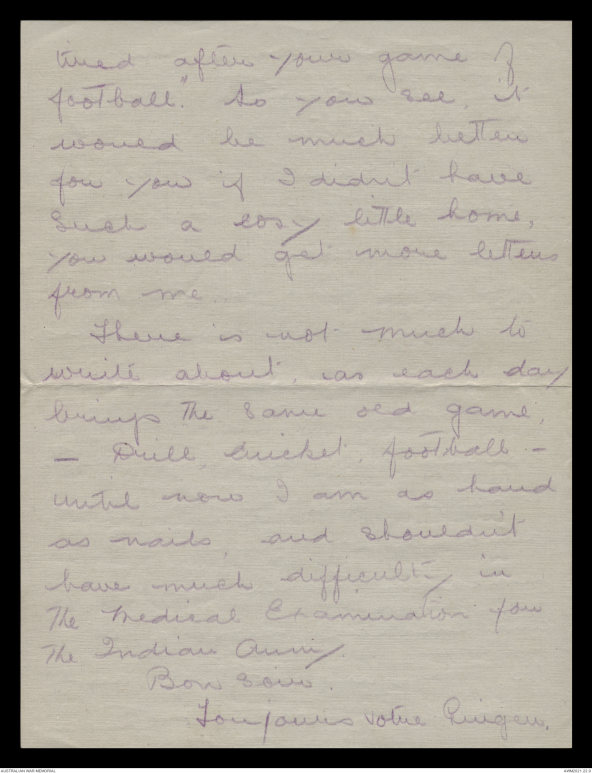 tired after your game of
football." So you see, it
would be much better
for you if I didn't have
such a cosy little home,
you would get more letters
from me.
There is not much to
write about, as each day
brings the same old game,
— Drill, Cricket, football —
until now I am as hard
as nails, and shouldn't
have much difficulty in
the Medical Examination for
the Indian Army.
Bon Soir.
Toujours votre
AUSTRALIAN WAR MEMORIAL
AWM2021.22.3